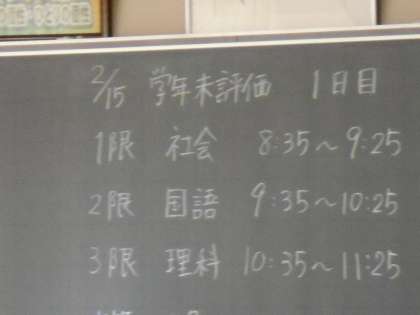 2/15 学年末評価 1日目
1限 社会 8:35～9:25
2限 国語 9:35～10:25
3限 理科 10:35～11:25